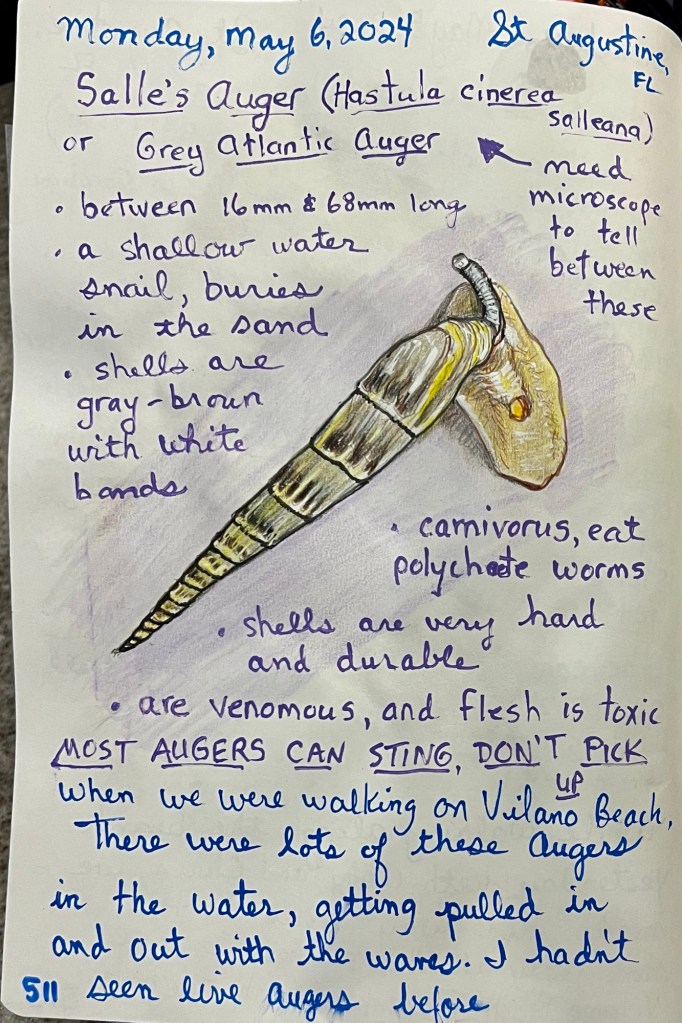 Monday, May 6, 2024 St Augustine, FL
Salle's Auger (Hastula cinerea salleana)
or Grey Atlantic Auger
need
microscope
to tell
between
these
• between 16mm & 68mm long
• a shallow water
snail, buries
in the sand
• shells are
gray-brown
with white
bands
• carnivorus, eat
polychaete worms
• shells are very hard
and durable
• are venomous, and flesh is toxic
MOST AUGERS CAN STING, DON'T PICK UP
When we were walking on Vilano Beach,
There were lots of these augers
in the water, getting pulled in
and out with the waves. I hadn't
511 seen live augers before